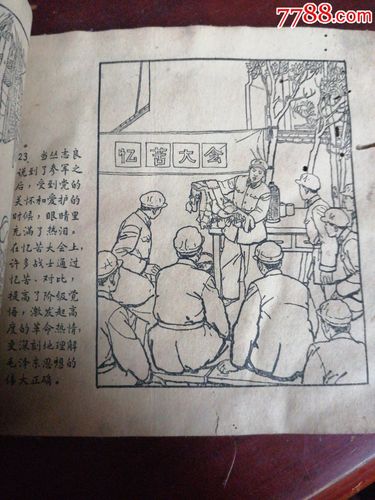 7788.com
中国收藏热线
忆苦大会
23. 当丛志良
说到了参军之
后，受到党的
关怀和爱护的
时候，眼睛里
充满了热泪。
在忆苦大会上，
许多战士通过
忆苦、对比，
提高了阶级觉
悟，激发起高
度的革命热情，
更深刻地理解
毛泽东思想的
伟大正确。